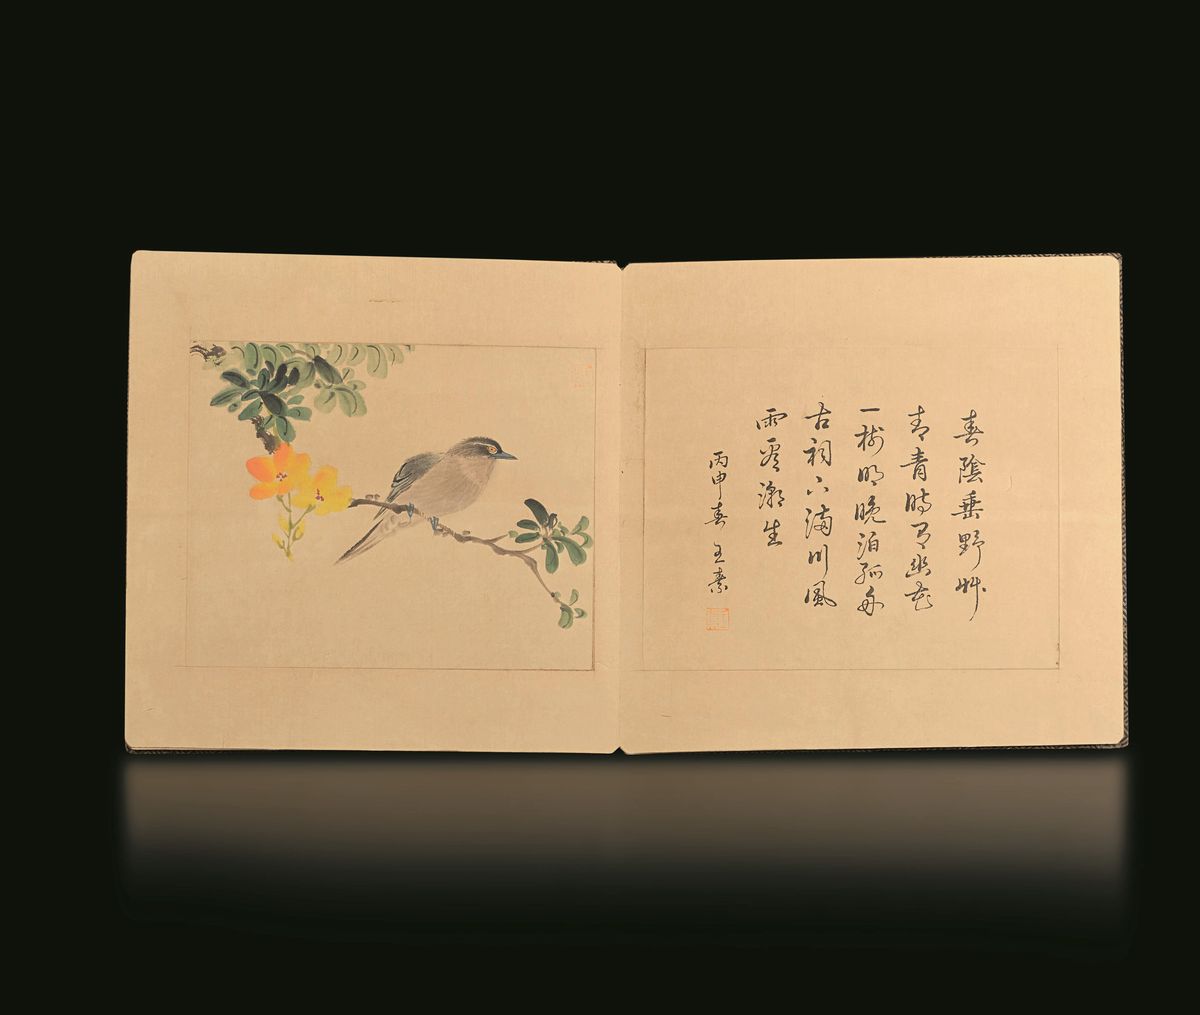 春陰垂野艸
青青時有幽花
一樹明晚泊孤舟
古祠下滿川風
雨看潮生
丙申春 王素